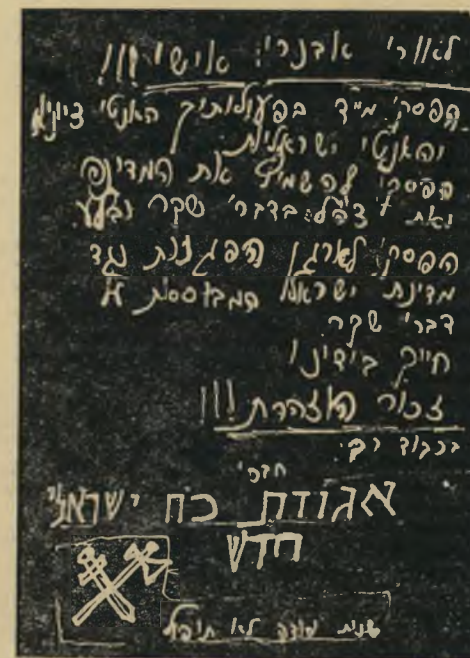 לאורי אבנרי: אישי!!!
הפסק! מיד בפעולותיך האנטי ציוניות
והאנטי ישראליות.
הפסק! להשמיץ את המדינה
ואת צה"ל בדברי שקר ובלע
הפסק! לארגן הפגנות נגד
מדינת ישראל המבוססות
דברי שקר
חייך בידינו!
זכור הוזהרת!!!
בכבוד רב:
חברי
אגודת כח ישראלי
חדש
שנית לא תיפול